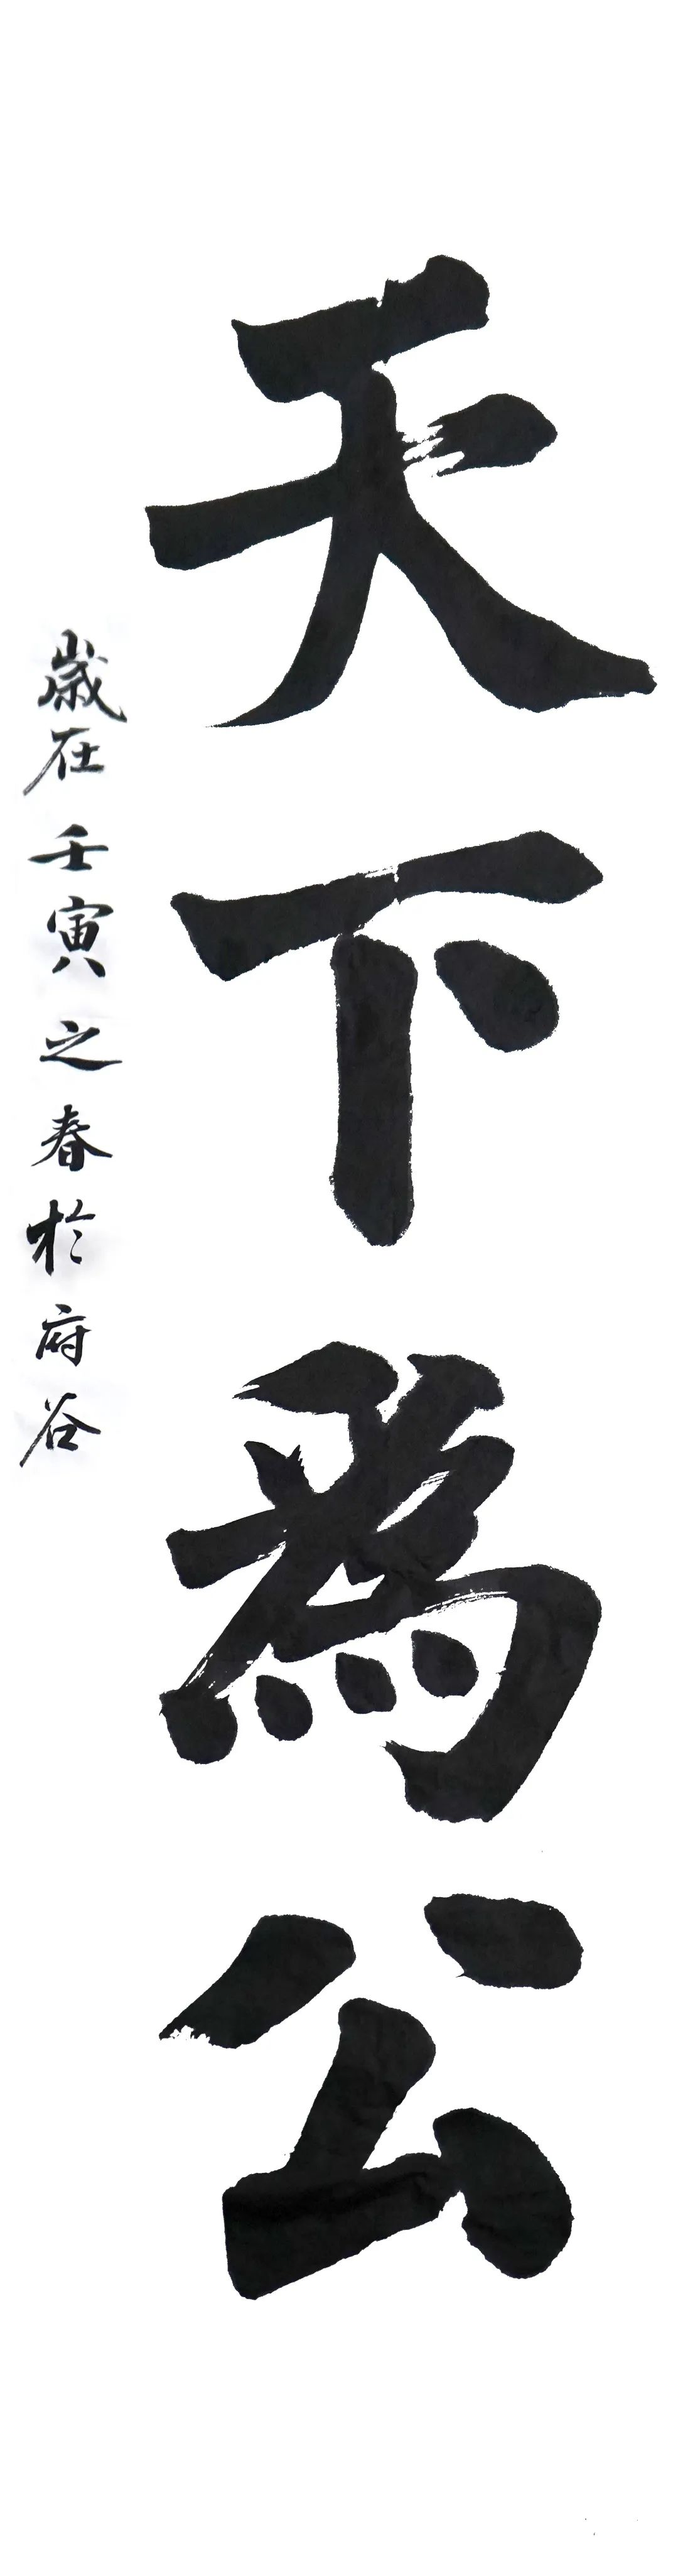 天下為公
歲在壬寅之春於府谷